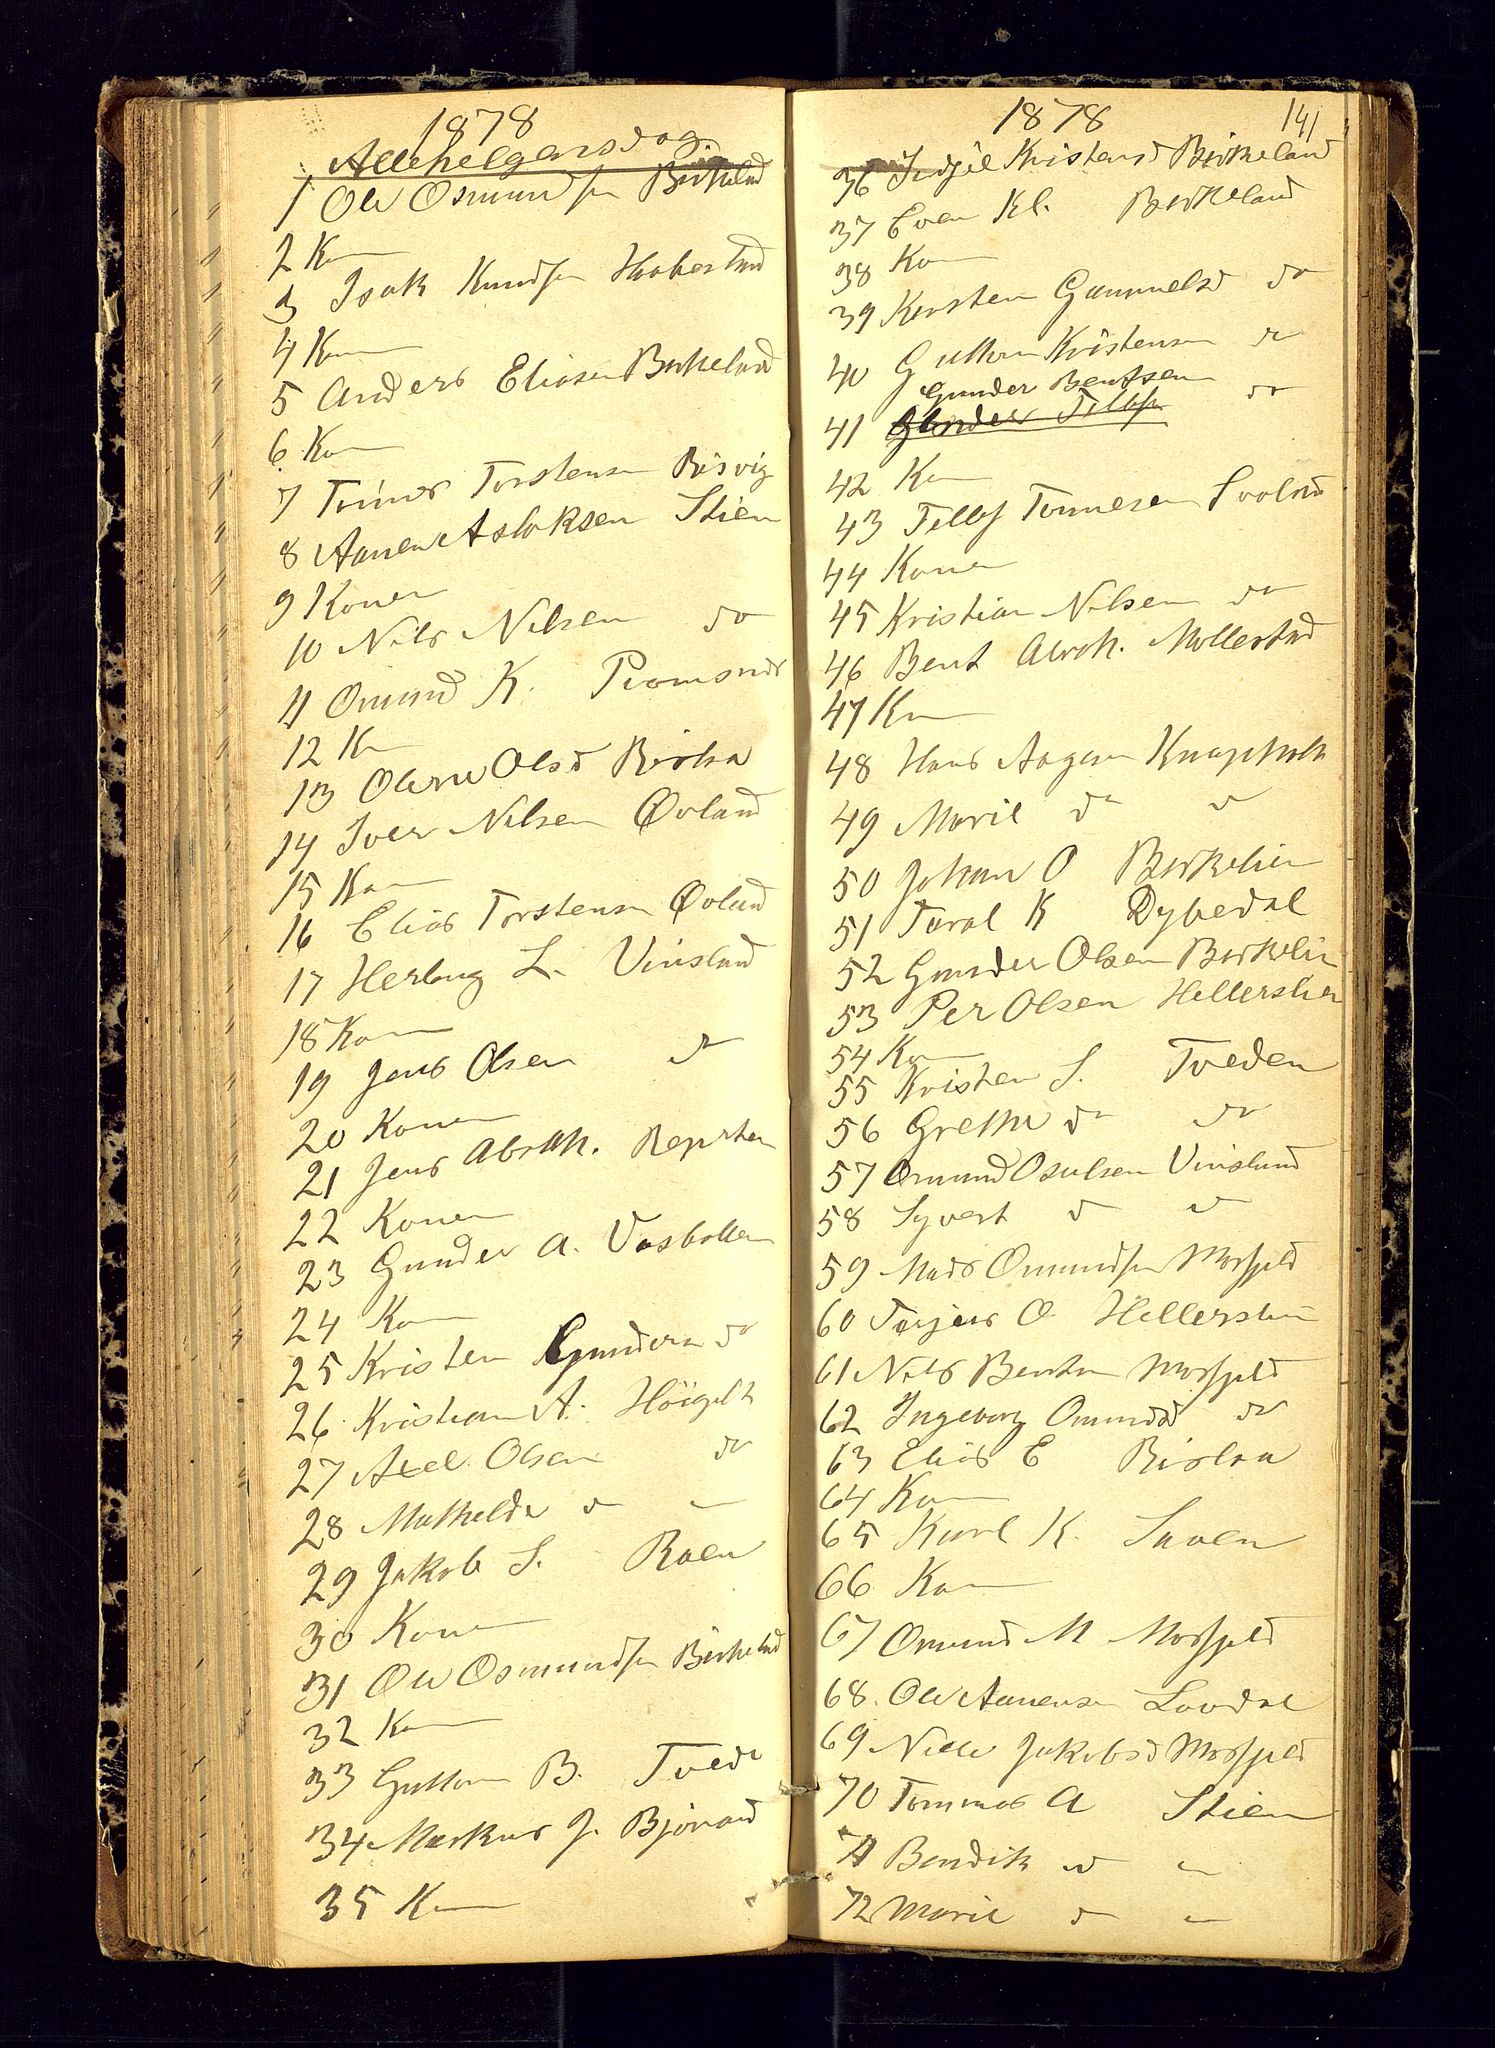 1878
Allehelgensdag
1 Ole Osmundsen Birkeland
2 Kon
3 Isak Knudsen Haabestad
4 Kon
5 Anders Eliasen Birkeland
6 Kon
7 Torstensen Risvig
8 Aanen Aslaksen Stien
9 Konen
10 Nils Nilsen do
11 Omund K.
12 Kon
13 Olene Olsd Risla
14 Iver Nilsen Øvland
15 Kon
16 Elias Torstensen Øvland
17 Herlug L. Vinsland
18 Kon
19 Jens Olsen do
20 Konen
21 Jens Abrah. Repsten
22 Konen
23 Gunder A. Vasbotten
24 Kon
25 Kristen Gundersen do
26 Kristian A. Höigilt
27 Axel Olsen do
28 Mathilde do
29 Jakob S. Roen
30 Konen
31 Ole Osmundsen Birkeland
32 Kon
33 Guttorm B. Tvede
34 Markus J. Bjórand
35 Kon
1878 141
36 Kristensd Birkeland
37 Even Kl. Birkeland
38 Kon
39 Kersten Gammelsd do
40 Guttorm Kristensen do
Gunder Bentsen
41 Gunder Tellefsen do
42 Kon
43 Tellef Tønnesen
44 Konen
45 Kristian Nilsen do
46 Bent Abrah. Mollestad
47 Kon
48 Hans Aagesen Knapholt
49 Marie do do
50 Johan O Birkelien
51 Taral K Dybedal
52 Gunder Olsen Birkelien
53 Per Olsen Hellerslien
54 Kon
55 Kristen S. Tveden
56 Grethe do do
57 Omund Osulsen Vinsland
58 Syvert do do
59 Mads Omundsen Mosfjeld
60 Terjus O. Hellerslien
61 Nils Bentsen Mosfjeld
62 Ingeborg Omundsd do
63 Elias E Rislaa
64 Kon
65 Karl K.
66 Kon
67 Omund M Mosfjeld
68. Ole Aanensen Lovdal
69 Nille Jakobsd Mosfjeld
70 Tommas A Stien
71 Bendik do
72 Marie do